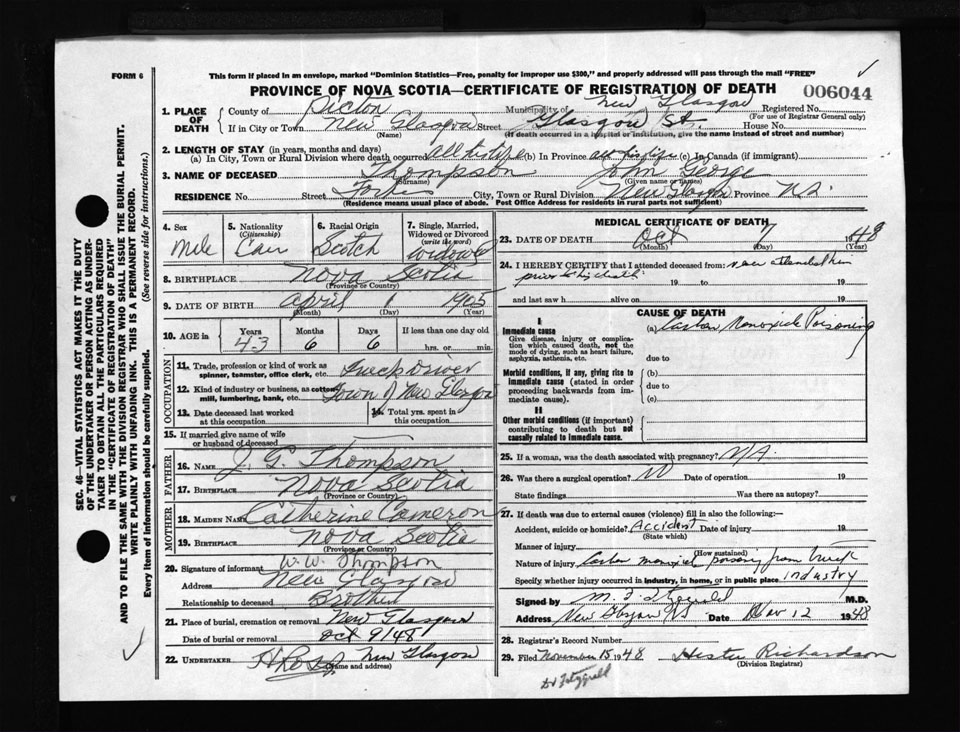 FORM 6
This form if placed in an envelope, marked "Dominion Statistics—Free, penalty for improper use $300," and properly addressed will pass through the mail "FREE"
PROVINCE OF NOVA SCOTIA—CERTIFICATE OF REGISTRATION OF DEATH
006044
1. PLACE OF DEATH
County of Pictou Municipality of New Glasgow Registered No.
(For use of Registrar General only)
If in City or Town New Glasgow Street Glasgow St. House No.
(Name) (If death occurred in a hospital or institution, give the name instead of street and number)
2. LENGTH OF STAY (in years, months and days)
(a) In City, Town or Rural Division where death occurred all his life (b) In Province all his life (c) In Canada (if immigrant)
3. NAME OF DECEASED Thompson John George
(Surname) (Given name or names)
RESIDENCE No. Street Forbes City, Town or Rural Division New Glasgow Province N.S.
(Residence means usual place of abode. Post Office Address for residents in rural parts not sufficient)
4. Sex
Male
5. Nationality
(Citizenship)
Can
6. Racial Origin
Scotch
7. Single, Married, Widowed or Divorced
(write the word)
Widowed
8. BIRTHPLACE Nova Scotia
(Province or Country)
9. DATE OF BIRTH April 1 1905
(Month) (Day) (Year)
10. AGE in Years Months Days If less than one day old
43 6 6 hrs. or min.
OCCUPATION
11. Trade, profession or kind of work as spinner, teamster, office clerk, etc. Truck driver
12. Kind of industry or business, as cotton mill, lumbering, bank, etc. Town of New Glasgow
13. Date deceased last worked at this occupation
14. Total yrs. spent in this occupation
15. If married give name of wife or husband of deceased
FATHER
16. NAME J. G. Thompson
17. BIRTHPLACE Nova Scotia
(Province or Country)
MOTHER
18. MAIDEN NAME Catherine Cameron
19. BIRTHPLACE Nova Scotia
(Province or Country)
20. Signature of informant W. W. Thompson
Address New Glasgow
Relationship to deceased Brother
21. Place of burial, cremation or removal New Glasgow
Date of burial or removal Oct 9/48
22. UNDERTAKER New Glasgow
(Name and address)
MEDICAL CERTIFICATE OF DEATH
23. DATE OF DEATH Oct 7 1948
(Month) (Day) (Year)
24. I HEREBY CERTIFY that I attended deceased from: never attended him
prior to his death 19 to 19
and last saw h alive on 19
CAUSE OF DEATH
I
Immediate cause
Give disease, injury or complication which caused death, not the mode of dying, such as heart failure, asphyxia, asthenia, etc.
(a) Carbon Monoxide Poisoning
due to
Morbid conditions, if any, giving rise to immediate cause (stated in order proceeding backwards from immediate cause).
(b)
due to
(c)
II
Other morbid conditions (if important) contributing to death but not causally related to immediate cause.
25. If a woman, was the death associated with pregnancy? N/A.
26. Was there a surgical operation? No Date of operation 19
State findings Was there an autopsy?
27. If death was due to external causes (violence) fill in also the following:—
Accident, suicide or homicide? Accident Date of injury 19
(State which)
Manner of injury
(How sustained)
Nature of injury Carbon monoxide poisoning from truck
Specify whether injury occurred in industry, in home, or in public place industry
Signed by M.D.
Address New Glasgow Date Nov 12 1948
28. Registrar's Record Number
29. Filed November 15 1948 Hester Richardson
(Division Registrar)
SEC. 46—VITAL STATISTICS ACT MAKES IT THE DUTY OF THE UNDERTAKER OR PERSON ACTING AS UNDERTAKER TO OBTAIN ALL THE PARTICULARS REQUIRED IN THE "CERTIFICATE OF REGISTRATION OF DEATH" AND TO FILE THE SAME WITH THE DIVISION REGISTRAR WHO SHALL ISSUE THE BURIAL PERMIT.
WRITE PLAINLY WITH UNFADING INK. THIS IS A PERMANENT RECORD.
Every item of information should be carefully supplied. (See reverse side for instructions.)